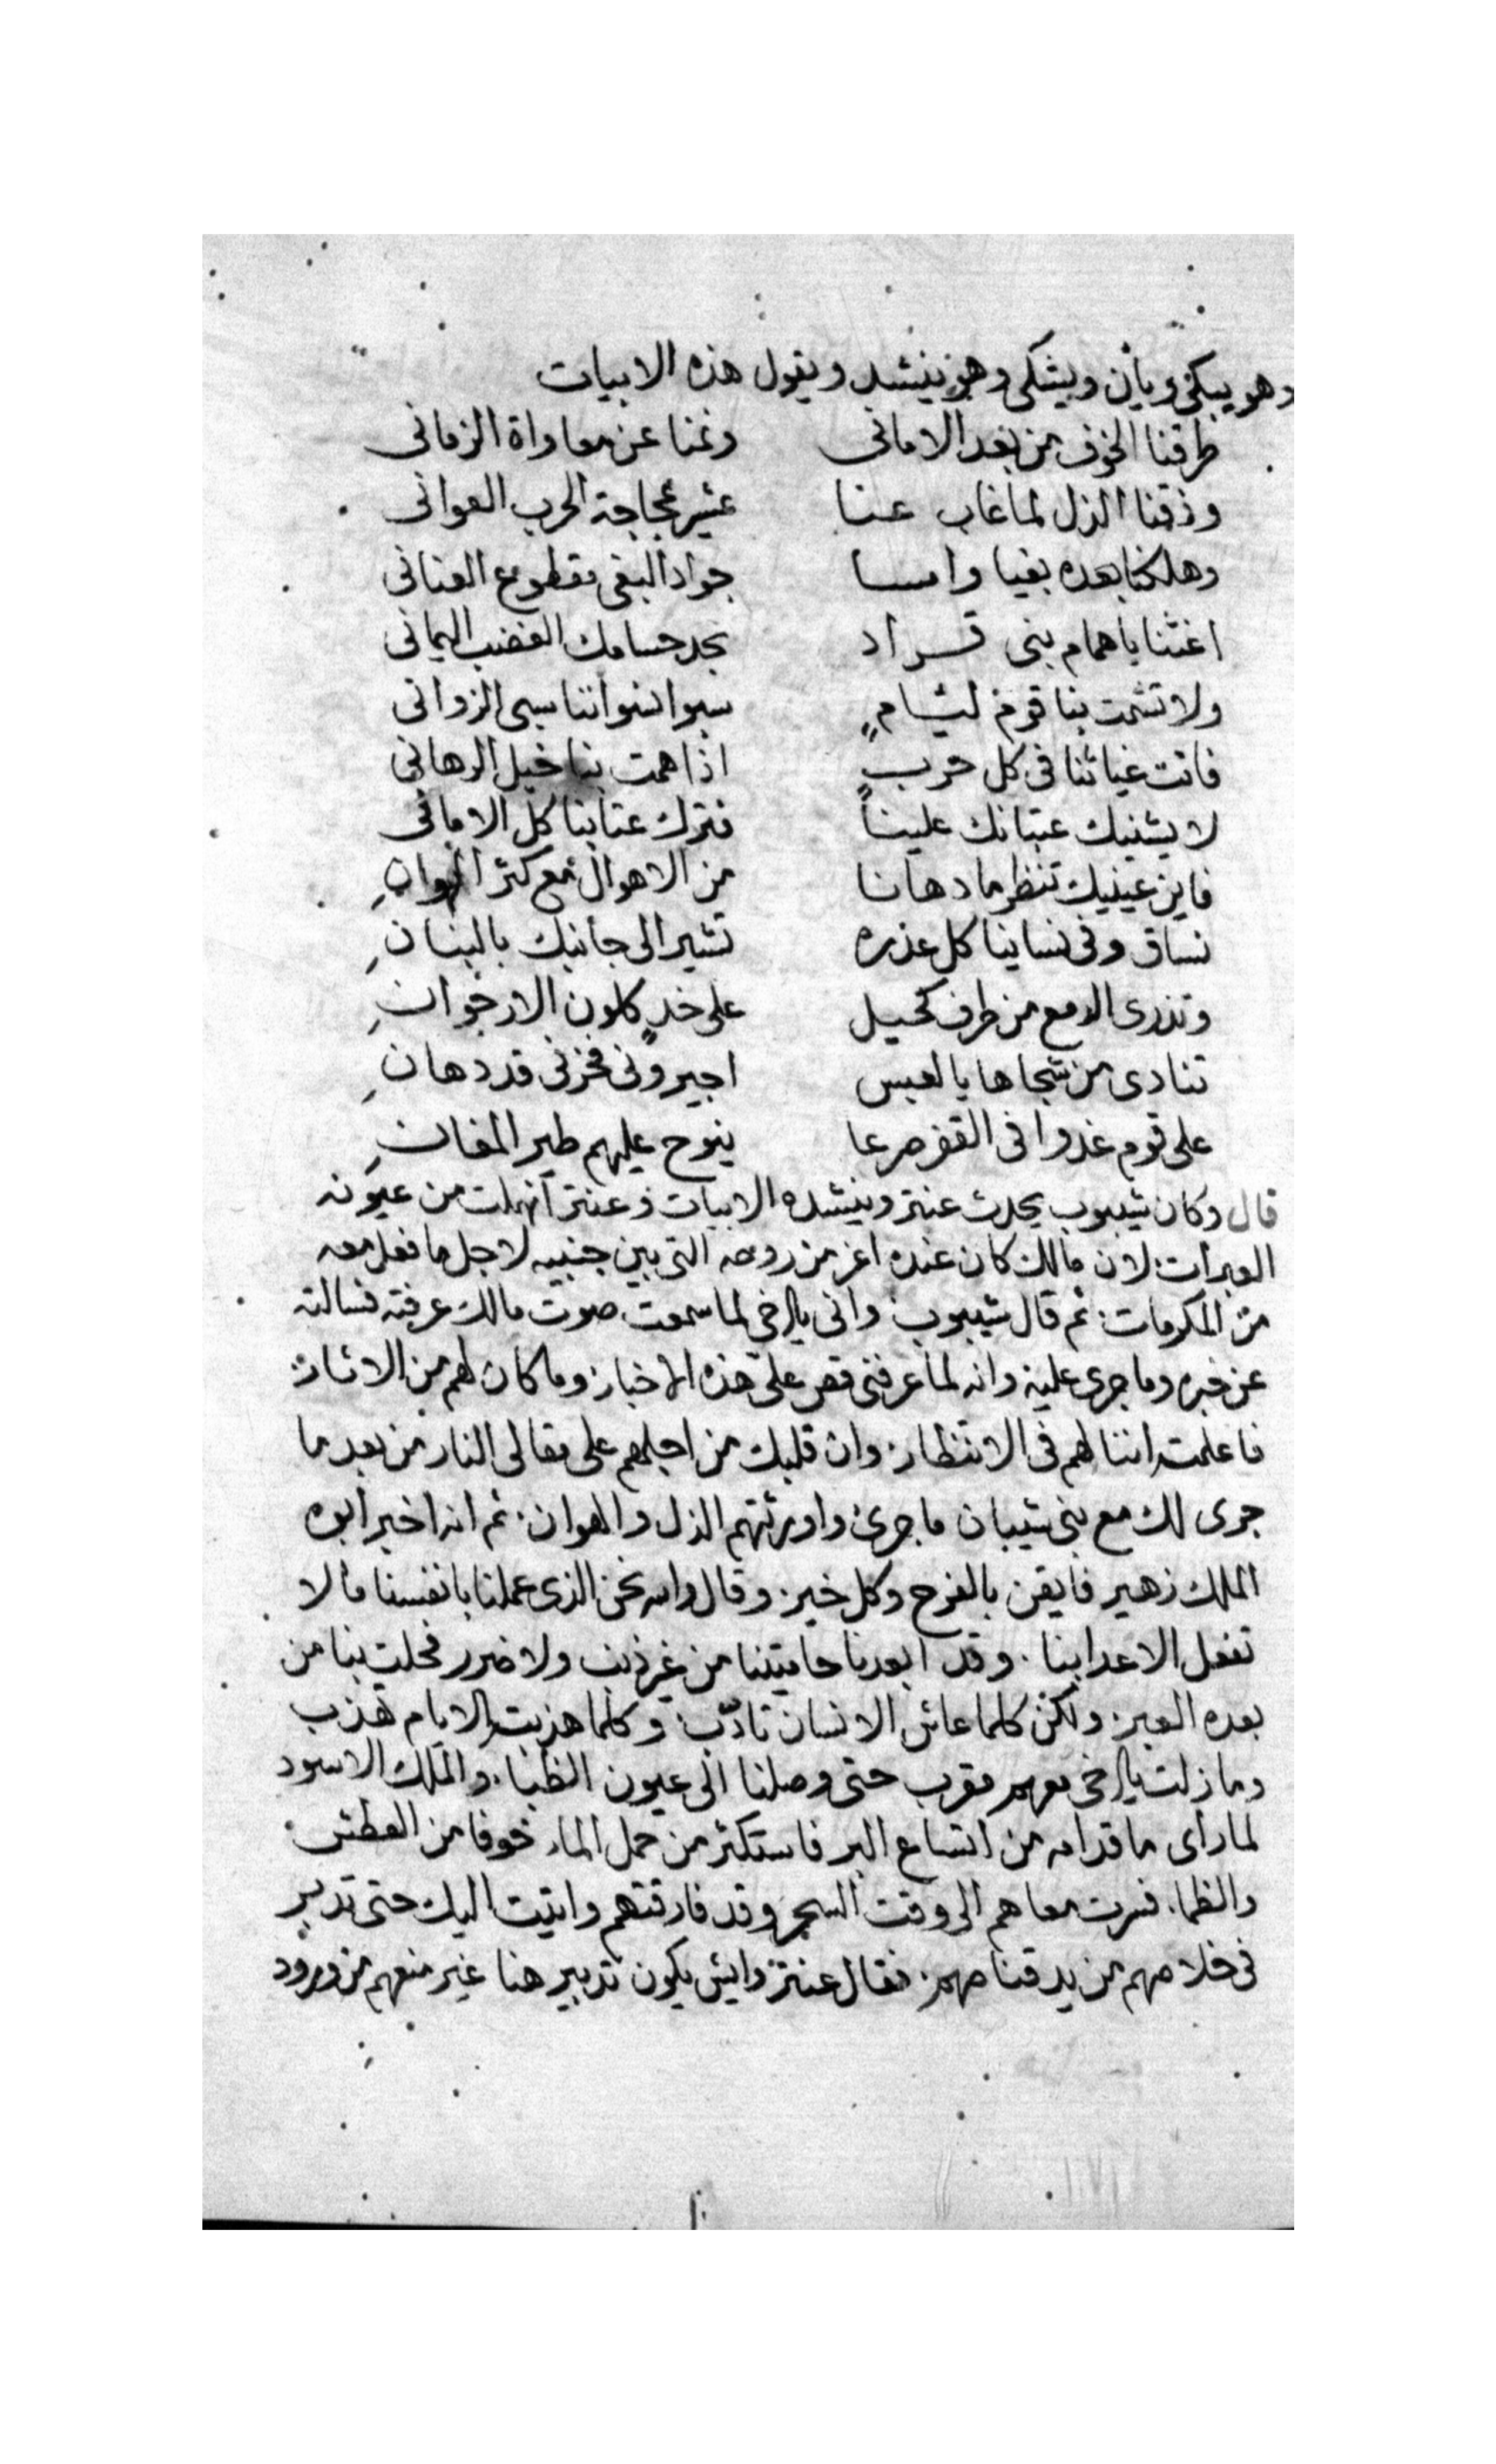 وهو يبكى ويأن ويشكى وهو ينشد ويقول هذه الابيات
طرقنا الخوف من بعد الامانى ونمنا عن معاداة الزمانى
وذقنا الذل لما غاب عنا عثير عجاجة الحرب العوانى
وهلكنا بعده بغيا وامسا جواد البغى مقطوع العنانى
اغثنا يا همام بنى قراد بحد حسامك العضب اليمانى
ولا تشمت بنا قوم لئام سبوا نسواننا سبى الزوانى
فانت غياثنا فى كل حرب اذا همت بنا خيل الرهانى
لا يثنيك عتبانك علينا فنترك عتابنا كل الامانى
فاين عينيك تنظر ما دهانا من الاهوال مع كثر الهوان
نساق وفى نساينا كل عذره تشير الى جانبك بالبنان
وتذرى الدمع من طرف كحيل على خد كلون الارجوان
تنادى من شجاها يا لعبس اجيرونى فحزنى قد دهان
على قوم غدوا فى القفر صرعا ينوح عليهم طير المغان
قال وكان شيبوب يحدث عنتر وينشده الابيات وعنتر انهملت من عيونه
العبرات لان مالك كان عنده اعز من روحه التى بين جنبيه لاجل ما فعل معه
من المكرمات ثم قال شيبوب وانى يا اخى لما سمعت صوت مالك عرفته فسالته
عن خبره وما جرى عليه وانه لما عرفنى قص على هذه الاخبار وما كان لهم من الاثار
فاعلمته اننا لهم فى الانتظار وان قلبك من اجلهم على مقالى النار من بعد ما
جرى لك مع بنى شيبان ما جرى واورثتهم الذل والهوان ثم انه اخبر ابوه
الملك زهير فايقن بالفرج وكل خير وقال والله نحن الذى عملنا بانفسنا ما لا
تفعل الاعدا بنا وقد ابعدنا حاميتنا من غير ذنب ولا ضرر فحلت بنا من
بعده العبر ولكن كلما عاش الانسان تادّب وكلما هذبته الايام تهذب
وما زلت يا اخى معهم مقرب حتى وصلنا الى عيون الظبا والملك الاسود
لما راى ما قدامه من اتساع البر فاستكثر من حمل الماء خوفا من العطش
والظما فسرت معاهم الى وقت السحر وقد فارقتهم واتيت اليك حتى تدبر
فى خلاصهم من يد قناصهم فقال عنتر وايش يكون تدبير هنا غير منعهم من ورود